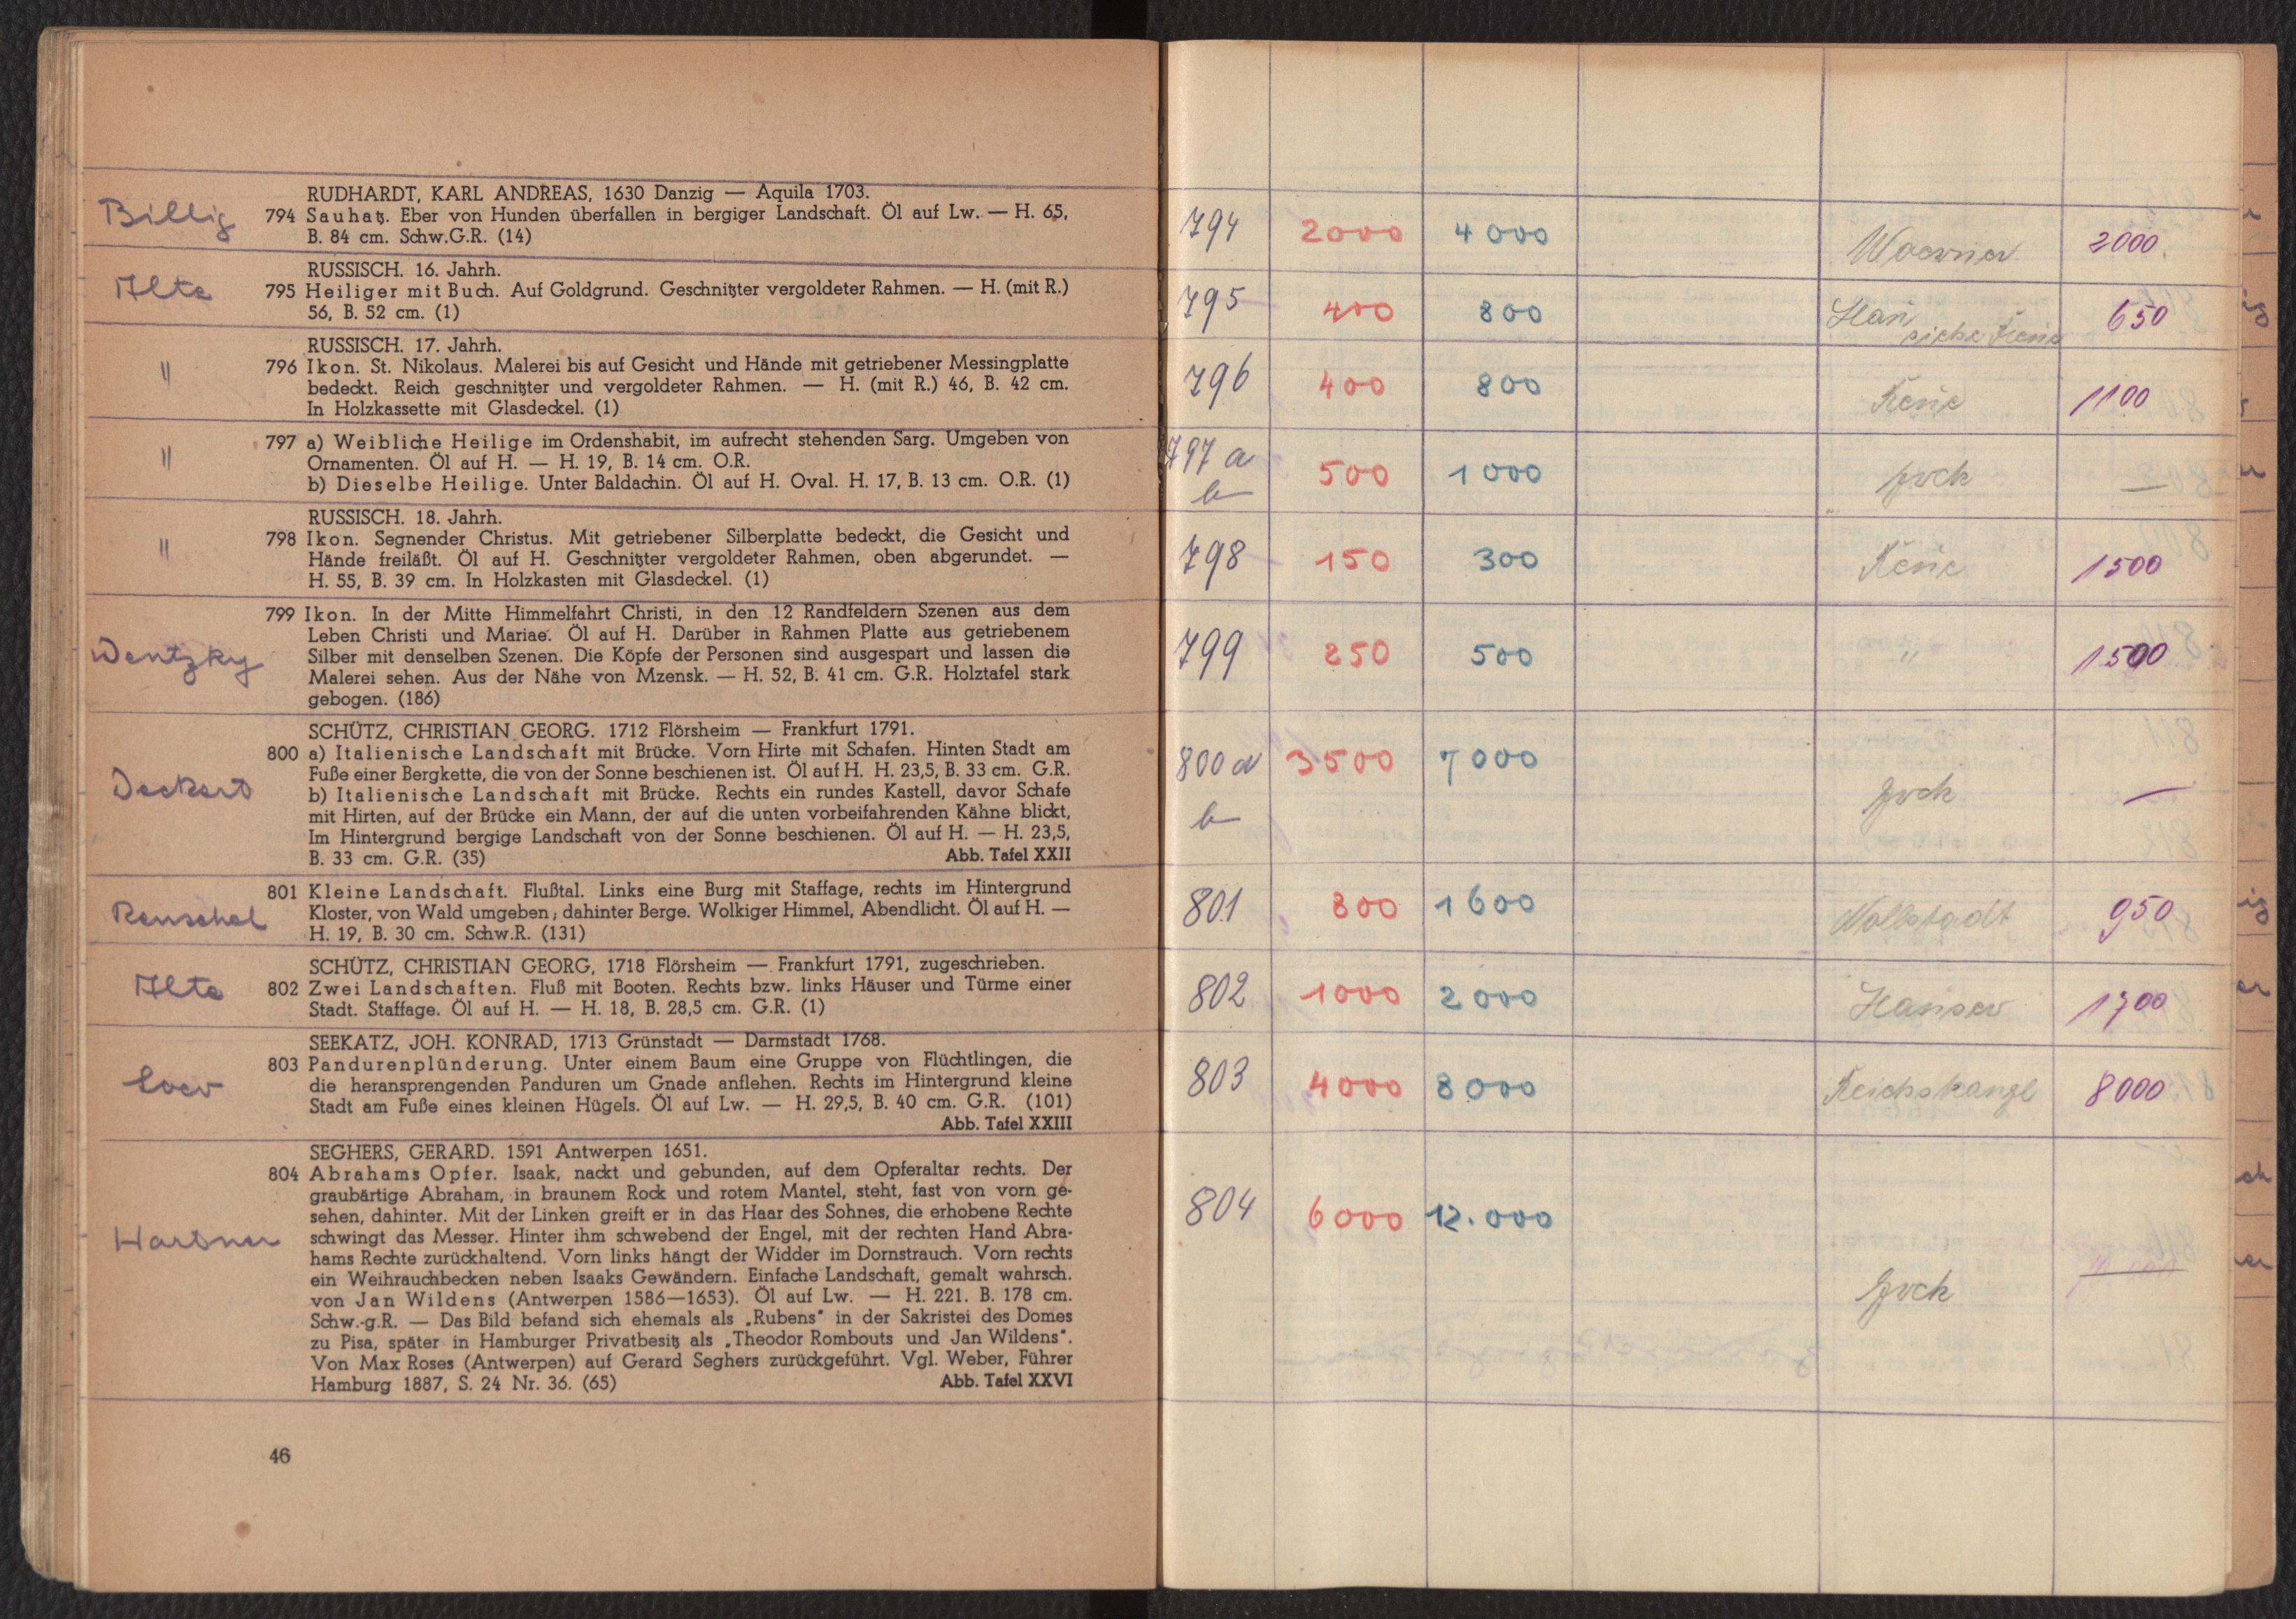 RUDHARDT, KARL ANDREAS, 1630 Danzig — Aquila 1703.
Billig
794 Sauhatz. Eber von Hunden überfallen in bergiger Landschaft. Öl auf Lw. — H. 65,
B. 84 cm. Schw.G.R. (14)
RUSSISCH. 16. Jahrh.
795 Heiliger mit Buch. Auf Goldgrund. Geschnitzter vergoldeter Rahmen. — H. (mit R.)
56, B. 52 cm. (1)
RUSSISCH. 17. Jahrh.
"
796 Ikon. St. Nikolaus. Malerei bis auf Gesicht und Hände mit getriebener Messingplatte
bedeckt. Reich geschnitzter und vergoldeter Rahmen. — H. (mit R.) 46, B. 42 cm.
In Holzkassette mit Glasdeckel. (1)
"
797 a) Weibliche Heilige im Ordenshabit, im aufrecht stehenden Sarg. Umgeben von
Ornamenten. Öl auf H. — H. 19, B. 14 cm. O.R.
b) Dieselbe Heilige. Unter Baldachin. Öl auf H. Oval. H. 17, B. 13 cm. O.R. (1)
RUSSISCH. 18. Jahrh.
"
798 Ikon. Segnender Christus. Mit getriebener Silberplatte bedeckt, die Gesicht und
Hände freiläßt. Öl auf H. Geschnitzter vergoldeter Rahmen, oben abgerundet. —
H. 55, B. 39 cm. In Holzkasten mit Glasdeckel. (1)
Wentzky
799 Ikon. In der Mitte Himmelfahrt Christi, in den 12 Randfeldern Szenen aus dem
Leben Christi und Mariae. Öl auf H. Darüber in Rahmen Platte aus getriebenem
Silber mit denselben Szenen. Die Köpfe der Personen sind ausgespart und lassen die
Malerei sehen. Aus der Nähe von Mzensk. — H. 52, B. 41 cm. G.R. Holztafel stark
gebogen. (186)
SCHÜTZ, CHRISTIAN GEORG. 1712 Flörsheim — Frankfurt 1791.
Deckert
800 a) Italienische Landschaft mit Brücke. Vorn Hirte mit Schafen. Hinten Stadt am
Fuße einer Bergkette, die von der Sonne beschienen ist. Öl auf H. H. 23,5, B. 33 cm. G.R.
b) Italienische Landschaft mit Brücke. Rechts ein rundes Kastell, davor Schafe
mit Hirten, auf der Brücke ein Mann, der auf die unten vorbeifahrenden Kähne blickt,
Im Hintergrund bergige Landschaft von der Sonne beschienen. Öl auf H. — H. 23,5,
B. 33 cm. G.R. (35) Abb. Tafel XXII
Renschel
801 Kleine Landschaft. Flußtal. Links eine Burg mit Staffage, rechts im Hintergrund
Kloster, von Wald umgeben; dahinter Berge. Wolkiger Himmel, Abendlicht. Öl auf H. —
H. 19, B. 30 cm. Schw.R. (131)
SCHÜTZ, CHRISTIAN GEORG, 1718 Flörsheim — Frankfurt 1791, zugeschrieben.
802 Zwei Landschaften. Fluß mit Booten. Rechts bzw. links Häuser und Türme einer
Stadt. Staffage. Öl auf H. — H. 18, B. 28,5 cm. G.R. (1)
SEEKATZ, JOH. KONRAD, 1713 Grünstadt — Darmstadt 1768.
803 Pandurenplünderung. Unter einem Baum eine Gruppe von Flüchtlingen, die
die heransprengenden Panduren um Gnade anflehen. Rechts im Hintergrund kleine
Stadt am Fuße eines kleinen Hügels. Öl auf Lw. — H. 29,5, B. 40 cm. G.R. (101)
Abb. Tafel XXIII
SEGHERS, GERARD. 1591 Antwerpen 1651.
804 Abrahams Opfer. Isaak, nackt und gebunden, auf dem Opferaltar rechts. Der
graubärtige Abraham, in braunem Rock und rotem Mantel, steht, fast von vorn ge-
sehen, dahinter. Mit der Linken greift er in das Haar des Sohnes, die erhobene Rechte
schwingt das Messer. Hinter ihm schwebend der Engel, mit der rechten Hand Abra-
hams Rechte zurückhaltend. Vorn links hängt der Widder im Dornstrauch. Vorn rechts
ein Weihrauchbecken neben Isaaks Gewändern. Einfache Landschaft, gemalt wahrsch.
von Jan Wildens (Antwerpen 1586—1653). Öl auf Lw. — H. 221. B. 178 cm.
Schw.-g.R. — Das Bild befand sich ehemals als „Rubens" in der Sakristei des Domes
zu Pisa, später in Hamburger Privatbesitz als „Theodor Rombouts und Jan Wildens".
Von Max Roses (Antwerpen) auf Gerard Seghers zurückgeführt. Vgl. Weber, Führer
Hamburg 1887, S. 24 Nr. 36. (65) Abb. Tafel XXVI
46
794 2000 4000 2000.
795 400 800 650
796 400 800 1100
797 a 500 1000 zrck —
b
798 150 300 1500
799 250 500 " 1500
800 a 3500 7000 zrck —
b
801 800 1600 950
802 1000 2000 Hanser 1700
803 4000 8000 Reichskanzl 8000
804 6000 12.000
zrck